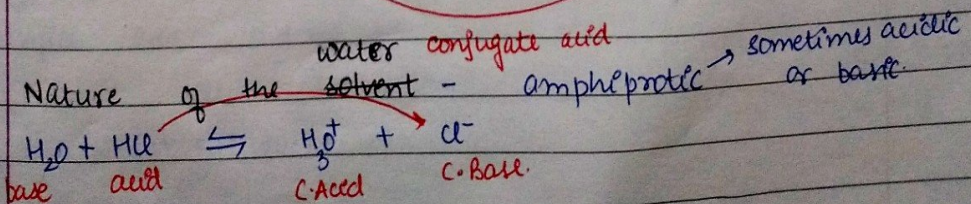 water conjugate acid
Nature of the solvent - amphiprotic → sometimes acidic
or basic.
H₂O + HCl ⇌ H₃O⁺ + Cl⁻
base acid C.Acid C.Base.